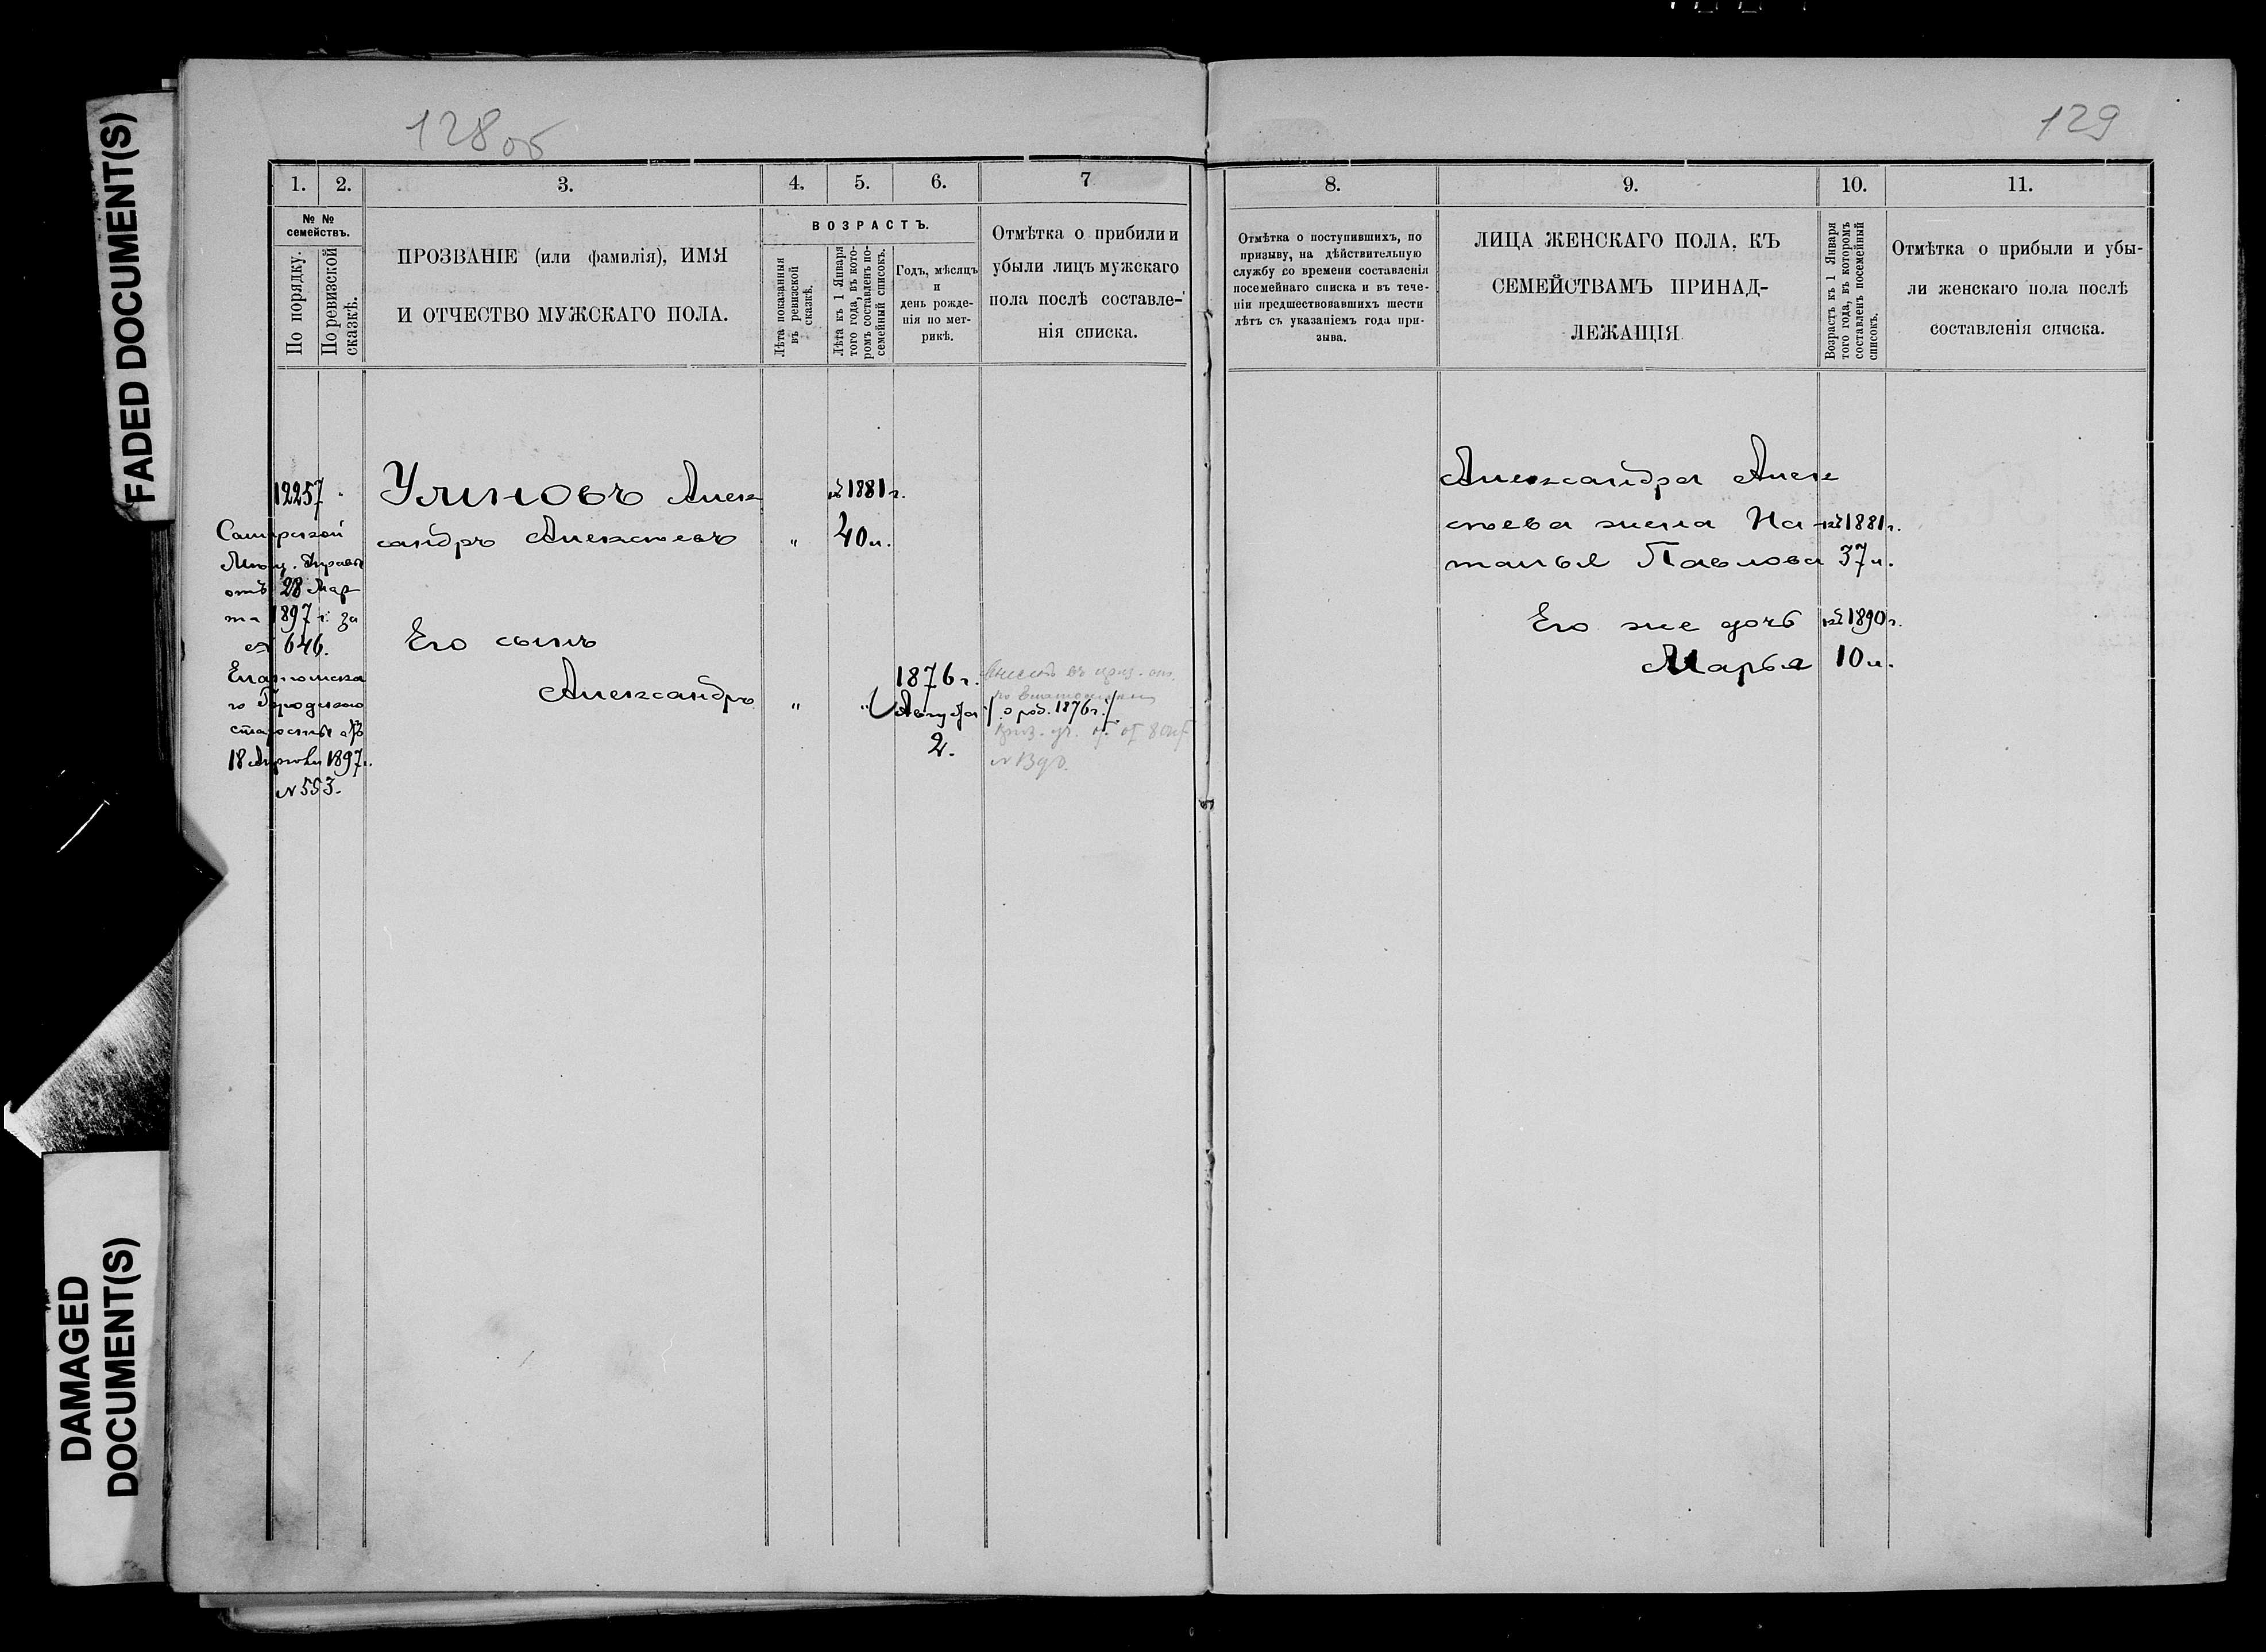 FADED DOCUMENT(S)
DAMAGED
DOCUMENT(S)
128об
1. 2. 3. 4. 5. 6. 7
№ №
семействъ.
По порядку.
По ревизской
сказкѣ.
ПРОЗВАНІЕ (или фамилія), ИМЯ
И ОТЧЕСТВО МУЖСКАГО ПОЛА.
ВОЗРАСТЪ.
Лѣта показанныя
въ ревизской
сказкѣ.
Лѣта къ 1 Января
того года, въ кото-
ромъ составленъ по-
семейный списокъ.
Годъ, мѣсяцъ
и
день рожде-
нія по мет-
рикѣ.
Отмѣтка о прибыли и
убыли лицъ мужскаго
пола послѣ составле-
нія списка.
12257
Самарской
Мѣщ. Управы
отъ 28 Мар
та 1897 г. за
№ 646.
Елатомска
го Городского
старосты отъ
18 Апрѣля 1897 г.
№ 553.
Улиновъ Алек
сандръ Алексѣевъ " 40 л.
къ 1881 г.
Его сынъ
Александръ " "
1876 г.
Августа
2.
о род. 1876 г.
129
8. 9. 10. 11.
Отмѣтка о поступившихъ, по
призыву, на дѣйствительную
службу со времени составленія
посемейнаго списка и въ тече-
ніи предшествовавшихъ шести
лѣтъ съ указаніемъ года при-
зыва.
ЛИЦА ЖЕНСКАГО ПОЛА, КЪ
СЕМЕЙСТВАМЪ ПРИНАД-
ЛЕЖАЩІЯ
Возрастъ къ 1 Января
того года, въ которомъ
составленъ посемейный
списокъ.
Отмѣтка о прибыли и убы-
ли женскаго пола послѣ
составленія списка.
Александра Алек
сѣева жена На къ 1881 г.
талья Павлова 37 л.
Его же дочь къ 1890 г.
Марья 10 л.